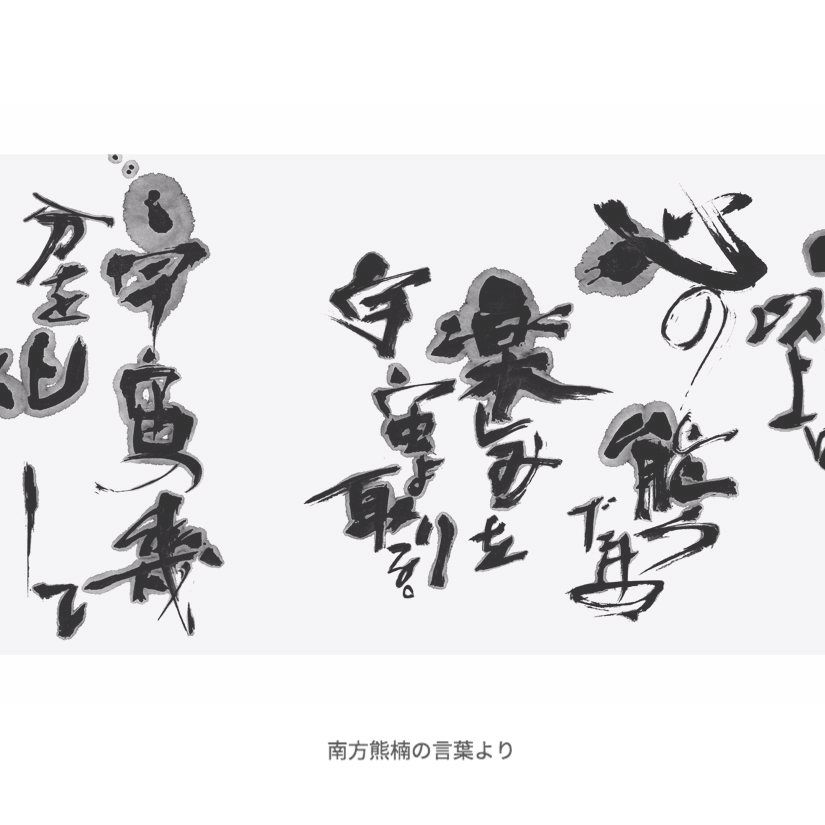 以上は
心の能う
だけの
楽しみを
宇宙より
取る。
宇宙の幾
分を化して
南方熊楠の言葉より